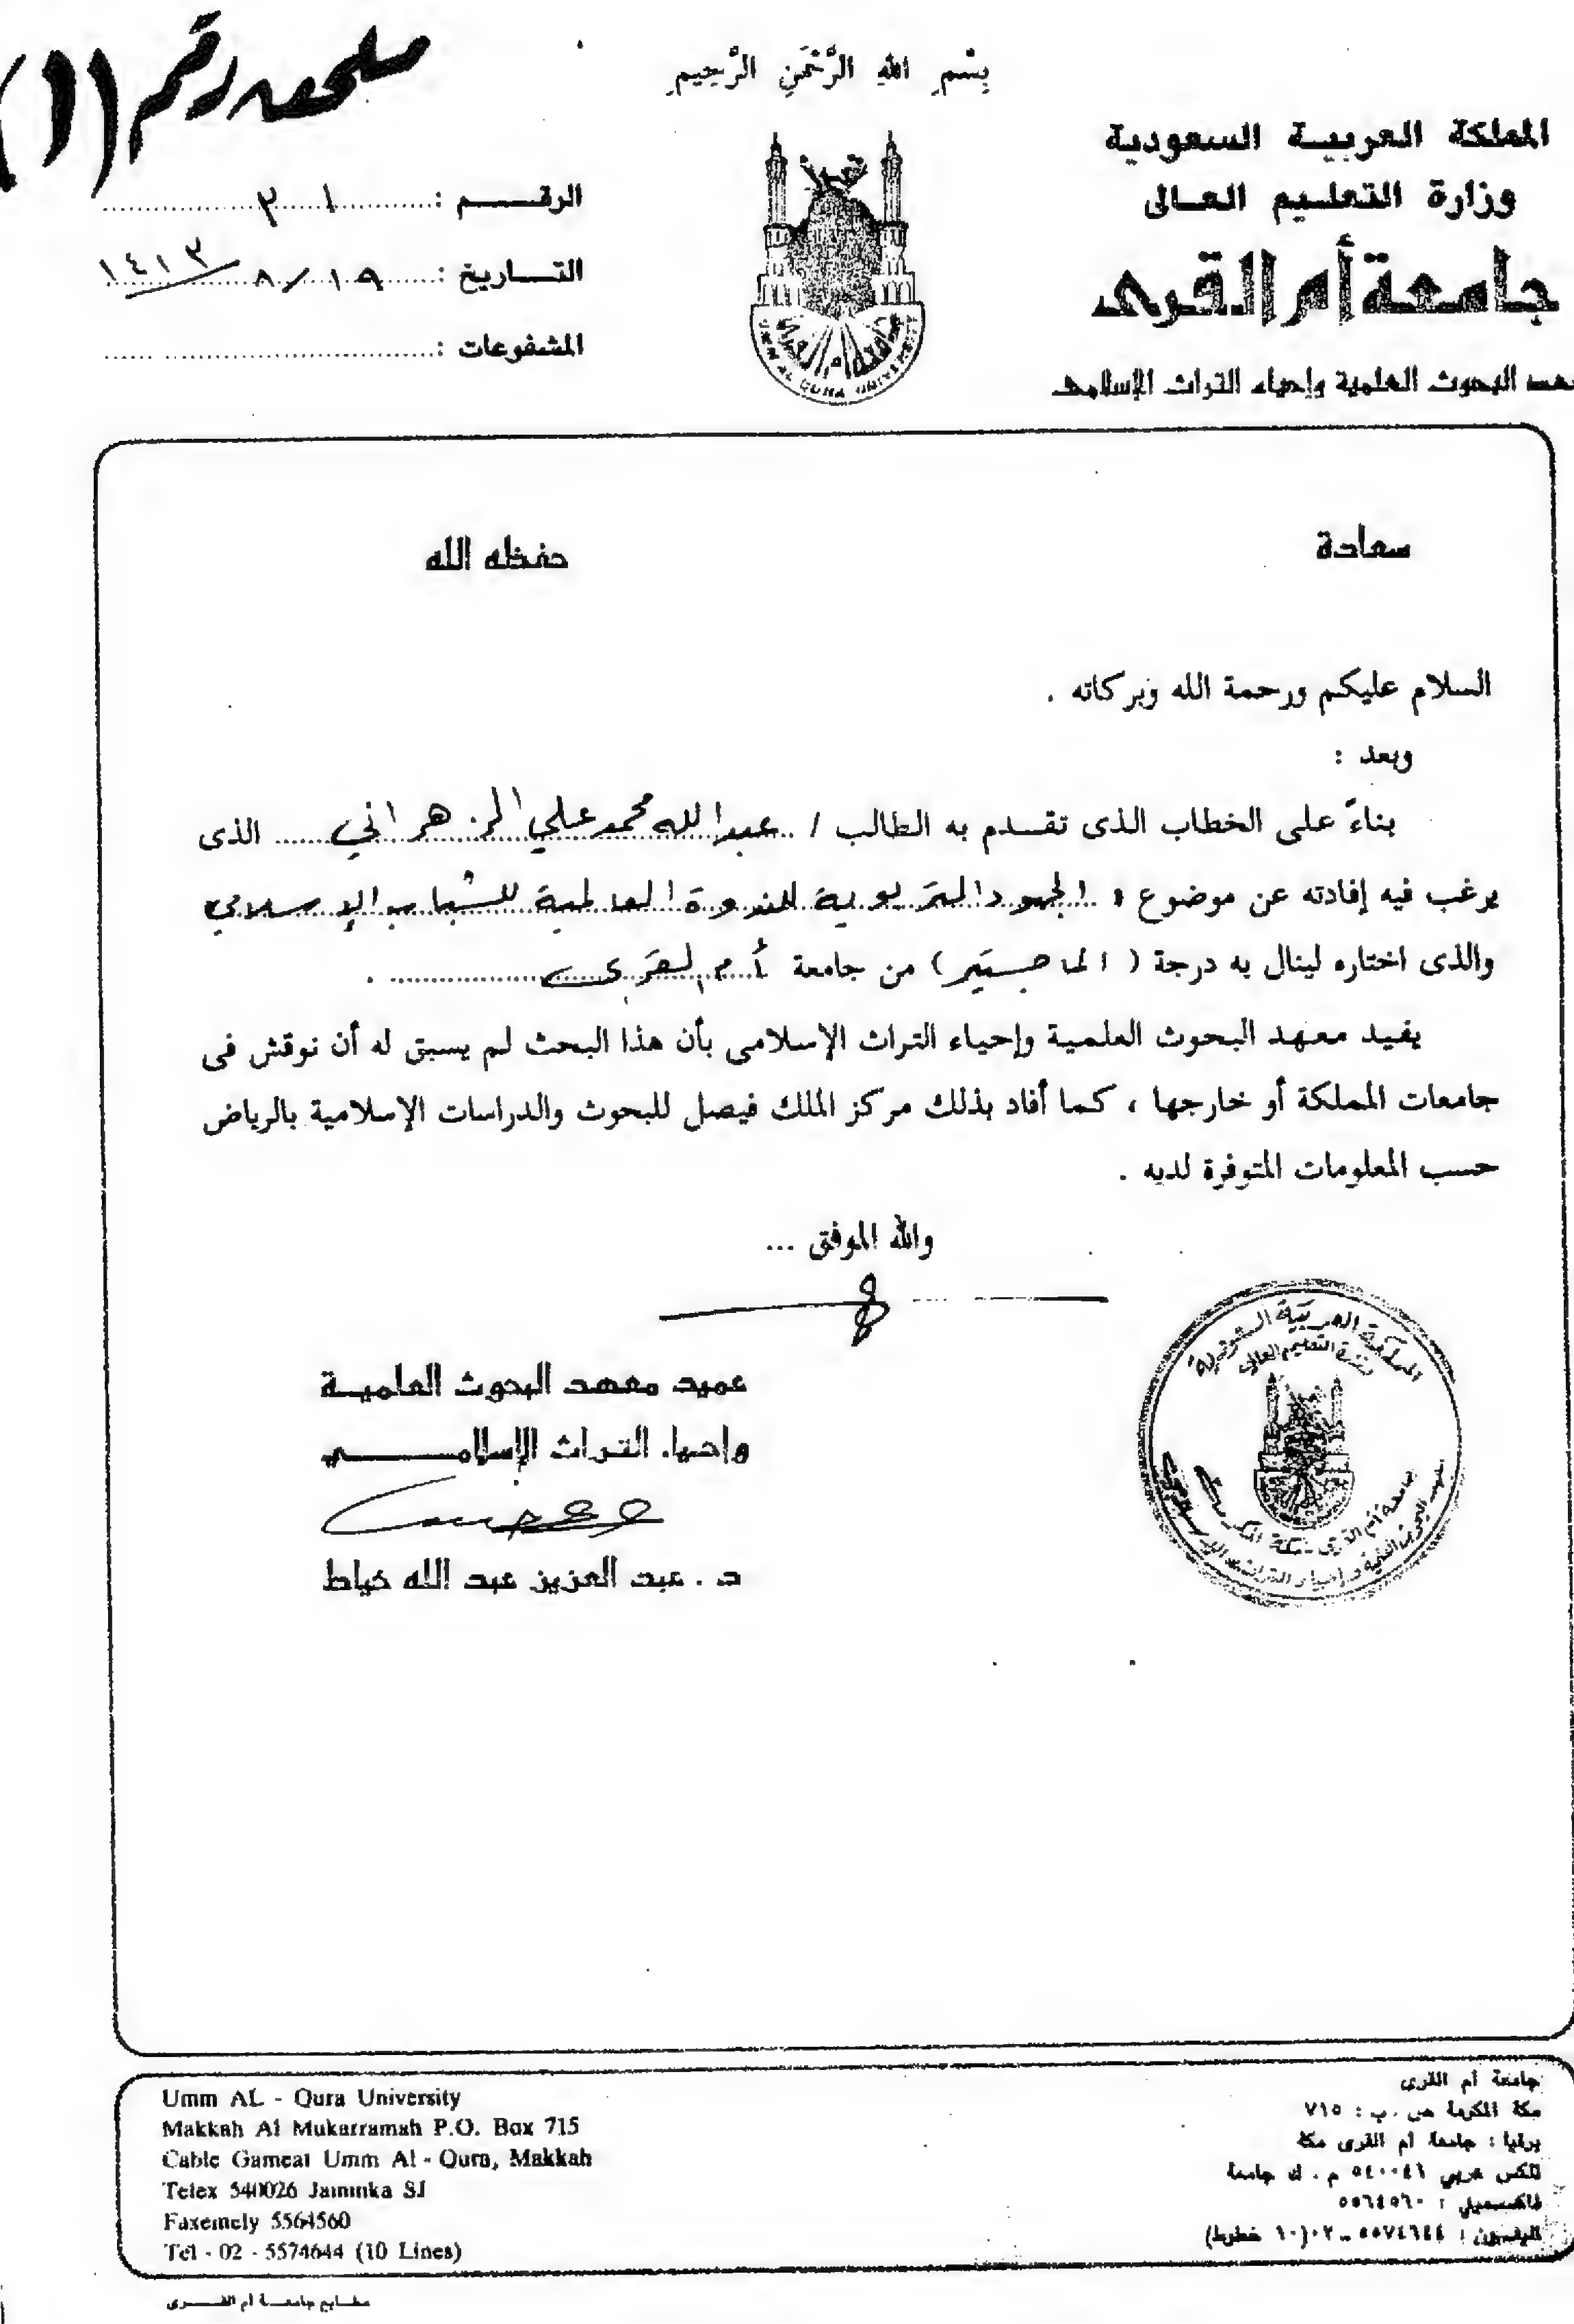 ملحق رقم (١)
بِسْمِ اللهِ الرَّحْمَنِ الرَّحِيمِ
المملكة العربية السعودية
وزارة التعليم العالى
جامعة أم القرى
معهد البحوث العلمية وإحياء التراث الإسلامى
الرقم : ٣٠١
التاريخ : ١٩/ ٨/ ١٤١٣
المشفوعات :
UMM AL QURA UNIVERSITY
سعادة حفظه الله
السلام عليكم ورحمة الله وبركاته .
وبعد :
بناءً على الخطاب الذى تقدم به الطالب / عبدالله محمد علي الزهراني الذى
يرغب فيه إفادته عن موضوع « الجهود التربوية للندوة العالمية للشباب الإسلامي
والذى اختاره لينال به درجة ( الماجستير ) من جامعة أم القرى .
يفيد معهد البحوث العلمية وإحياء التراث الإسلامى بأن هذا البحث لم يسبق له أن نوقش فى
جامعات المملكة أو خارجها ، كما أفاد بذلك مركز الملك فيصل للبحوث والدراسات الإسلامية بالرياض
حسب المعلومات المتوفرة لديه .
والله الموفق ...
عميد معهد البحوث العلمية
وإحياء التراث الإسلامي
د . عبد العزيز عبد الله خياط
المملكة العربية السعودية
وزارة التعليم العالي
جامعة أم القرى - مكة المكرمة
معهد البحوث العلمية وإحياء التراث الإسلامي
Umm AL - Qura University
Makkah Al Mukarramah P.O. Box 715
Cable Gameat Umm Al - Qura, Makkah
Telex 540026 Jammka SJ
Faxemely 5564560
Tel - 02 - 5574644 (10 Lines)
جامعة أم القرى
مكة المكرمة ص . ب : ٧١٥
برقيا : جامعة أم القرى مكة
تلكس عربي ٥٤٠٠٤١ م . ك جامعة
فاكسميلي : ٥٥٦٤٥٦٠
تليفون : ٥٥٧٤٦٤٤ - ٠٢ (١٠ خطوط)
مطابع جامعة أم القرى